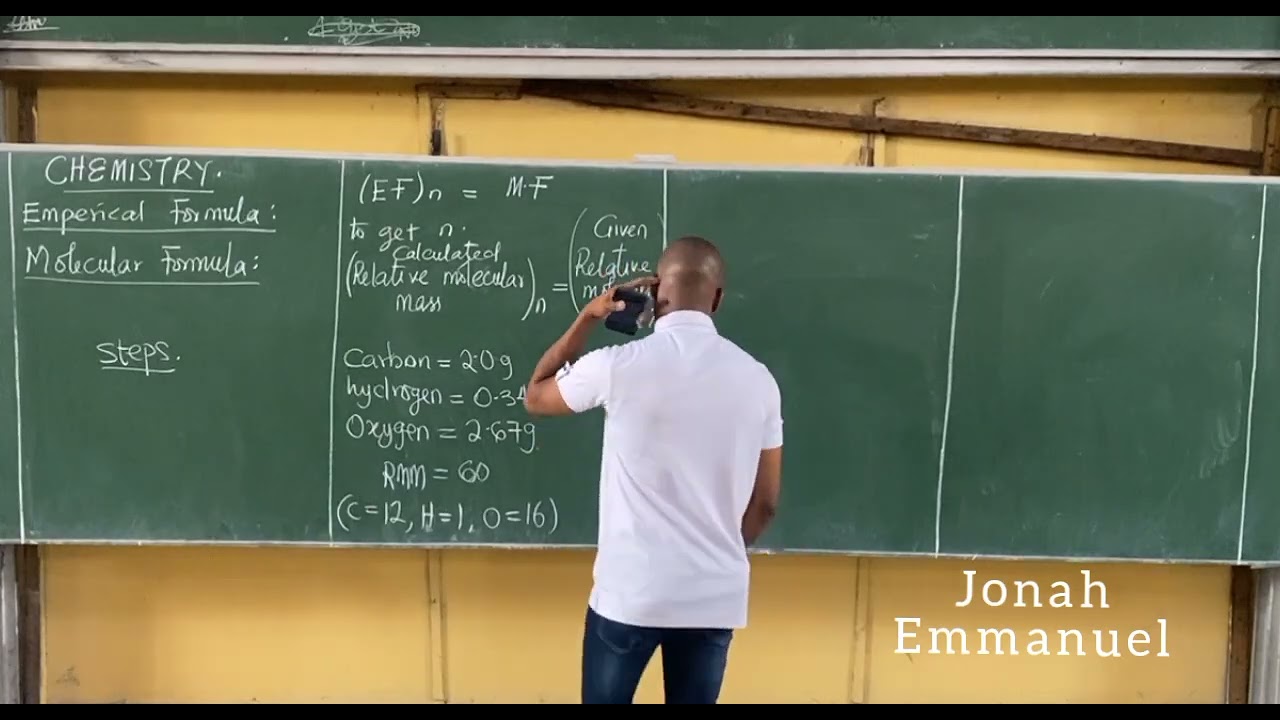 CHEMISTRY.
Emperical Formula:
Molecular Formula:
steps.
(EF)n = M.F
to get n.
Calculated
(Relative molecular
mass
)n = (Given
Relative
Carbon = 2.0g
hydrogen = 0.34
Oxygen = 2.67g
RMM = 60
(C=12, H=1, O=16)
Jonah
Emmanuel